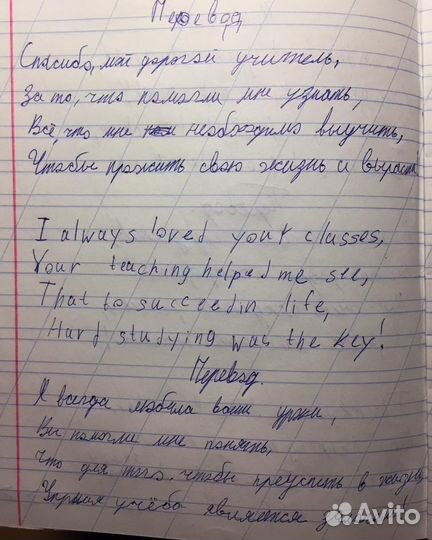 Перевод
Спасибо, мой дорогой учитель,
За то, что помогли мне узнать,
Всё, что мне необходимо выучить,
Чтобы прожить свою жизнь и вырасти
I always loved your classes,
Your teaching helped me see,
That to succeed in life,
Hard studying was the key!
Перевод.
Я всегда любила ваши уроки,
Вы помогли мне понять,
Что для того, чтобы преуспеть в жизни
Упорная учёба является
Avito